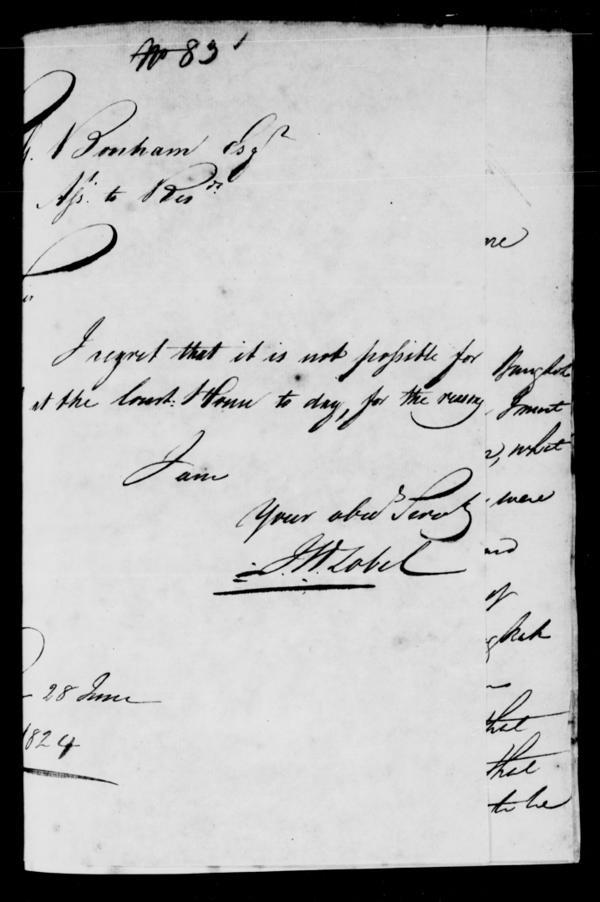 No 83
G. Bonham Esqr
Asst. to Resdt
I regret that it is not possible for
at the Court House to day, for the reason
I am
Your obed Servt
28 June
1824
me
Bangkok
I must
what
were
and
of
that
that
to be